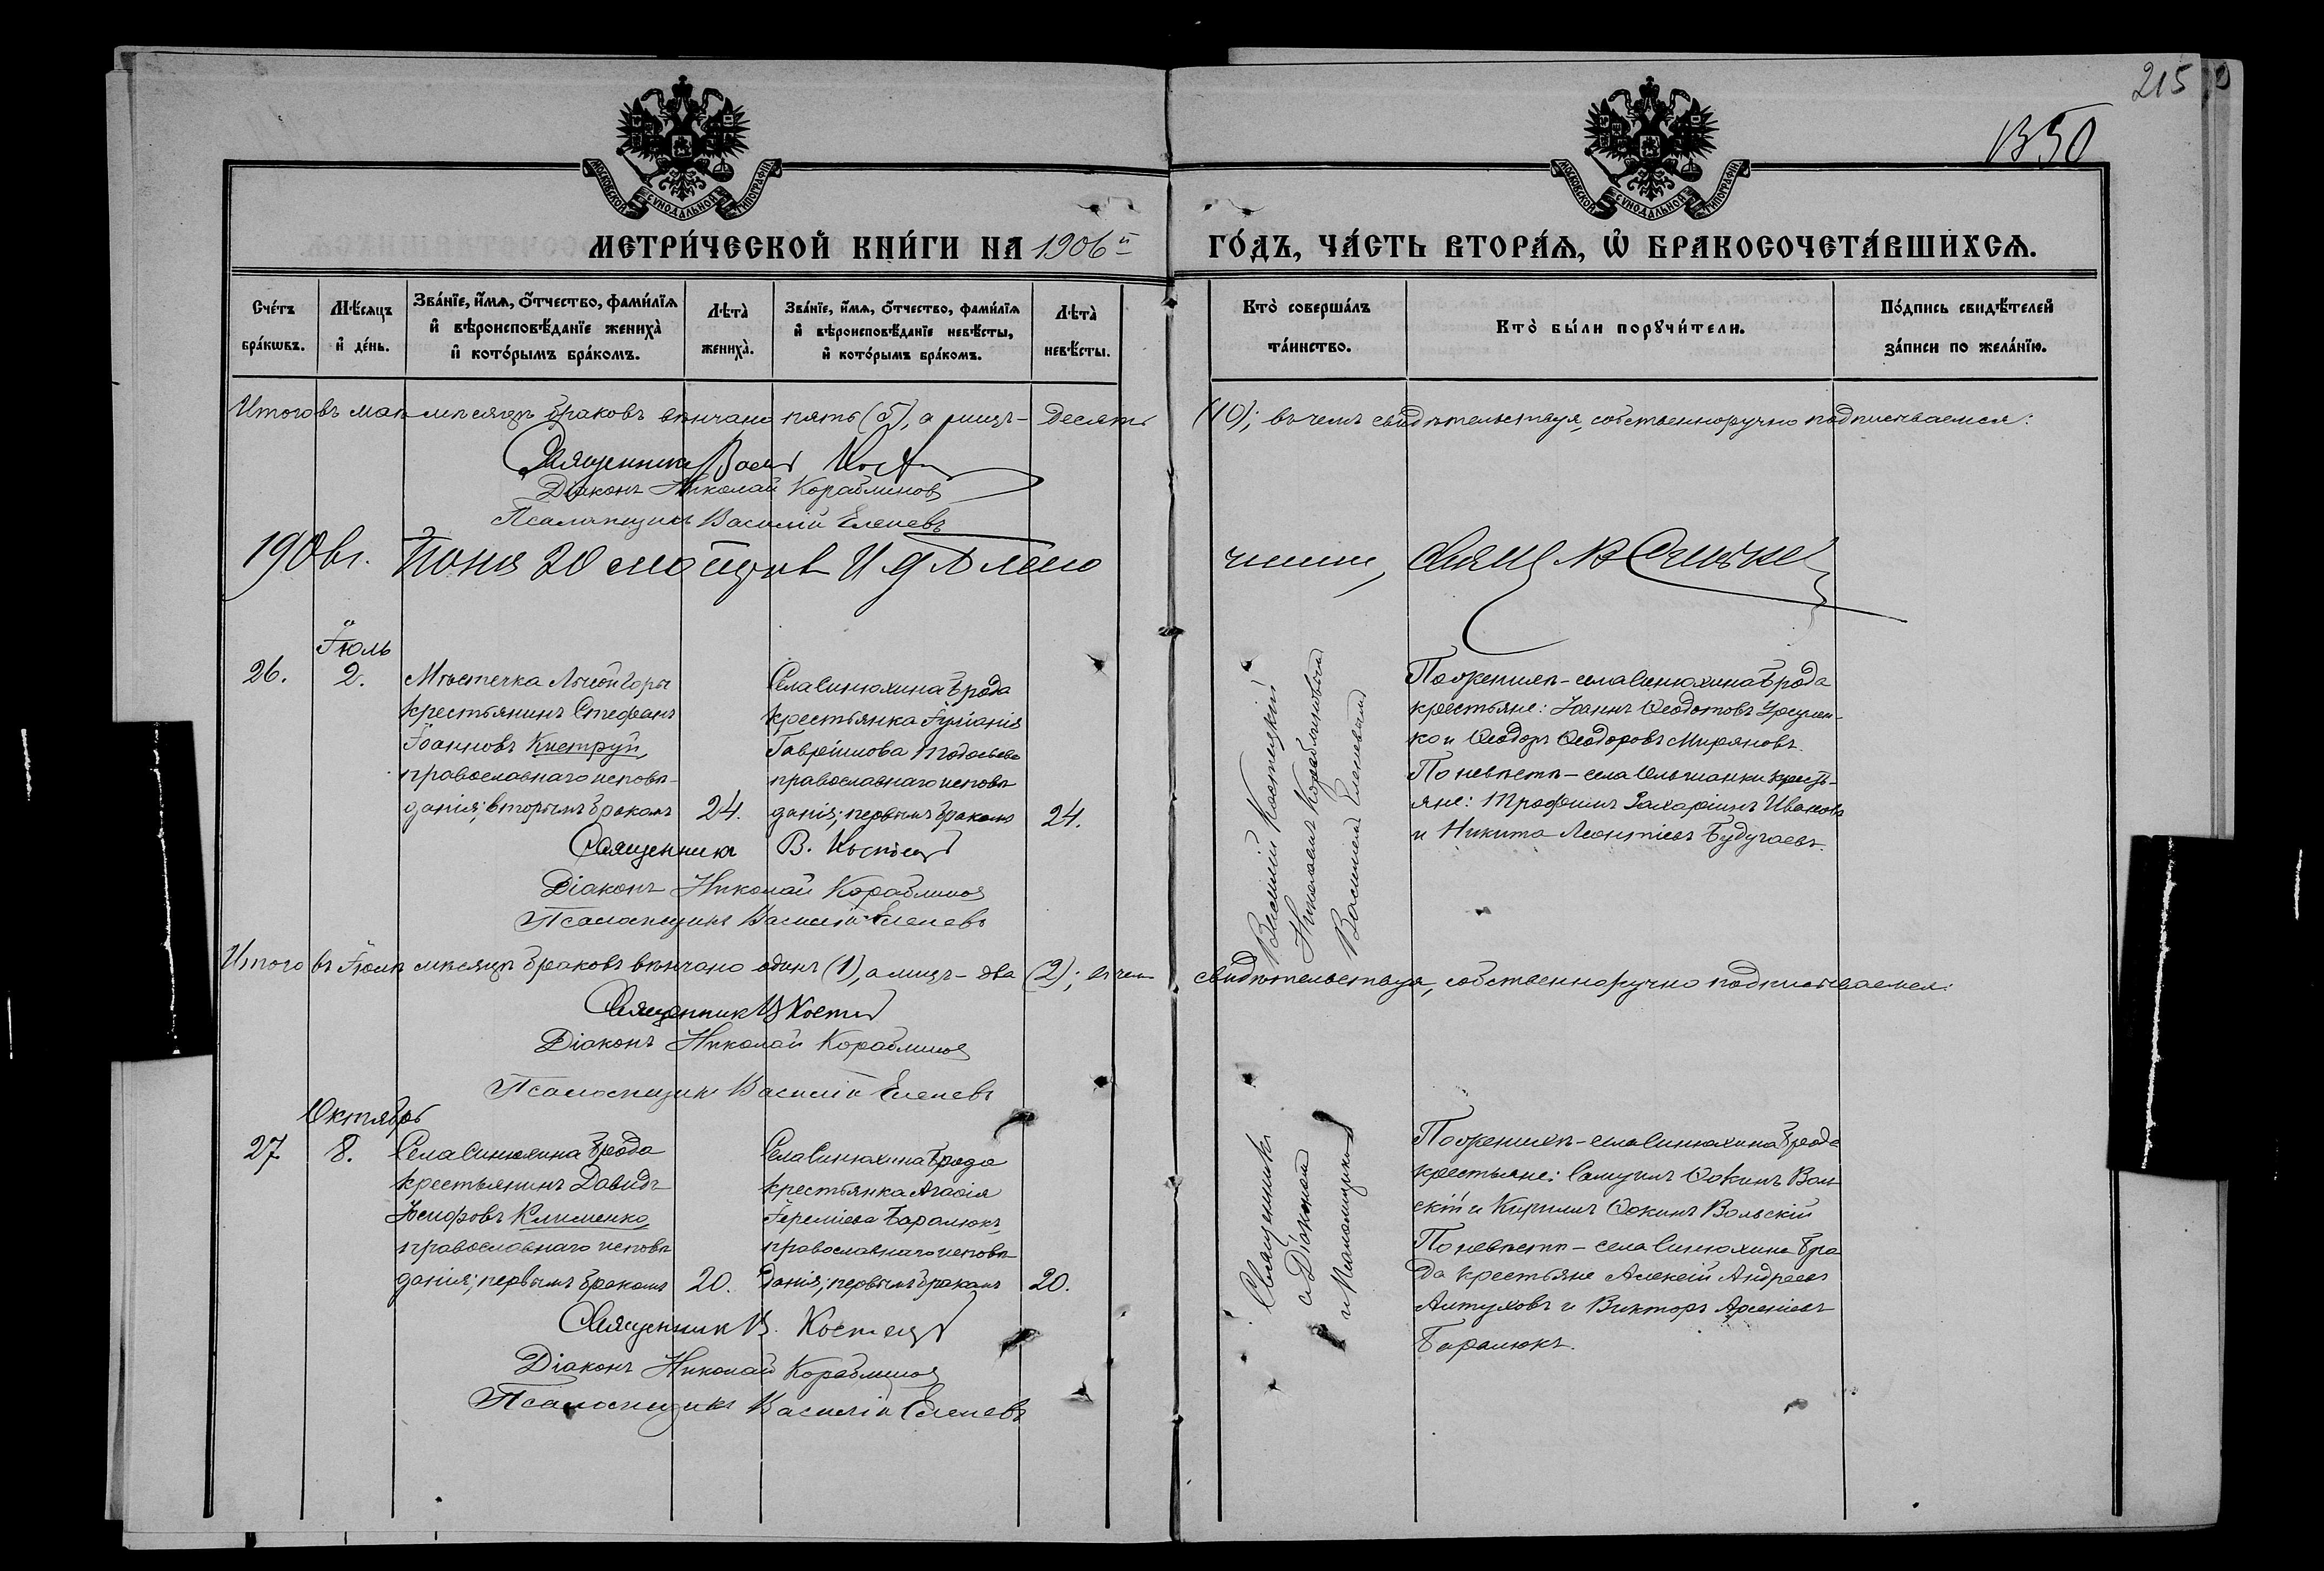 215
1350
МОСКОВСКОЙ СУНОДАЛЬНОЙ ТИПОГРАФІИ
МОСКОВСКОЙ СУНОДАЛЬНОЙ ТИПОГРАФІИ
МЕТРИ́ЧЕСКОЙ КНИ́ГИ НА 1906й ГО́ДЪ, ЧА́СТЬ ВТОРА́Ѧ, Ѡ БРАКОСОЧЕТА́ВШИХСѦ.
Сче́тъ бра́кѡвъ.
Мѣ́сяцъ и де́нь.
Зва́нїе, и́мѧ, о́тчество, фами́лїѧ и вѣроисповѣ́данїе жениха̀ и кото́рымъ бра́комъ.
Лѣта̀ жениха̀.
Зва́нїе, и́мѧ, о́тчество, фами́лїѧ и вѣроисповѣ́данїе невѣ́сты, и кото́рымъ бра́комъ.
Лѣта̀ невѣ́сты.
Кто̀ соверша́лъ та́инство.
Кто̀ бы́ли порꙋчи́тели.
По́дпись свидѣ́телей за́писи по жела́нїю.
Итого въ маѣ мѣсяцѣ браковъ вѣнчано пять (5), а лицъ - десять (10); въ чемъ свидѣтельствуя, собственноручно подписываемся:
Священникъ
Діаконъ Николай Кораблиновъ
Псаломщикъ Василій Еленевъ
1906 г. Іюня 20
Іюль
26.
2.
Мѣстечка Лысой Горы
крестьянинъ Стефанъ
Іоанновъ КистрУй,
православнаго исповѣ-
данія; вторымъ бракомъ
24.
Села Синюхина Брода
крестьянка Іуліанія
Гавріилова Тодосьева
православнаго исповѣ
данія; первымъ бракомъ
24.
Василій Костецкій
Николаемъ Кораблиновымъ
Василіемъ Еленевымъ
По женихѣ - села Синюхина Брода
крестьяне: Іоаннъ Ѳеодотовъ
ко и Ѳеодоръ Ѳеодоровъ Мирановъ.
По невѣстѣ - села Ольшанки кресть-
яне: Трофимъ Захаріинъ Ивановъ
и Никита Леонтіевъ Будугаевъ.
Священникъ В. Костецкій
Діаконъ Николай Кораблиновъ
Псаломщикъ Василій Еленевъ
Итого въ Іюлѣ мѣсяцѣ браковъ вѣнчано одинъ (1), а лицъ - два (2); въ чемъ свидѣтельствуя, собственноручно подписываемся:
Священникъ В Костецкій
Діаконъ Николай Кораблиновъ
Псаломщикъ Василій Еленевъ
Октябрь
27
8.
Села Синюхина Брода
крестьянинъ Давидъ
Іосифовъ Клименко,
православнаго исповѣ
данія; первымъ бракомъ
20.
Села Синюхина Брода
крестьянка Агафія
Іереміева Баралюкъ,
православнаго исповѣ-
данія; первымъ бракомъ
20.
Священникъ
съ Діакономъ
и Псаломщикомъ
По женихѣ - села Синюхина Брода
крестьяне: Самуилъ Ѳокинъ Воль
скій и Кириллъ Ѳокинъ Вольскій
По невѣстѣ - села Синюхина Бро
да крестьяне Алексій Андреевъ
Алтуховъ и Викторъ Арсеніевъ
Баралюкъ.
Священникъ В. Костецкій
Діаконъ Николай Кораблиновъ
Псаломщикъ Василій Еленевъ